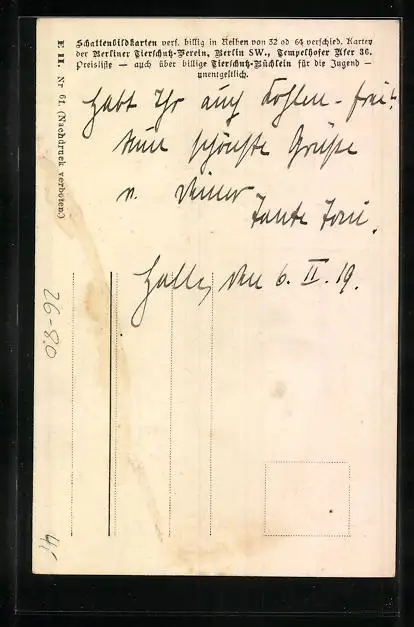 Schattenbildkarten vers. billig in Reihen von 32 od 64 verschied. Karten
der Berliner Tierschutz-Verein, Berlin SW., Tempelhofer Ufer 36.
Preisliste — auch über billige Tierschutz-Büchlein für die Jugend —
unentgeltlich.
E II. Nr 61. (Nachdruck verboten.)
Habt Ihr auch Kohlen-frei?
Nun schönste Grüße
v. Deiner
Tante Toni.
Halle, den 6. II. 19.
26-80